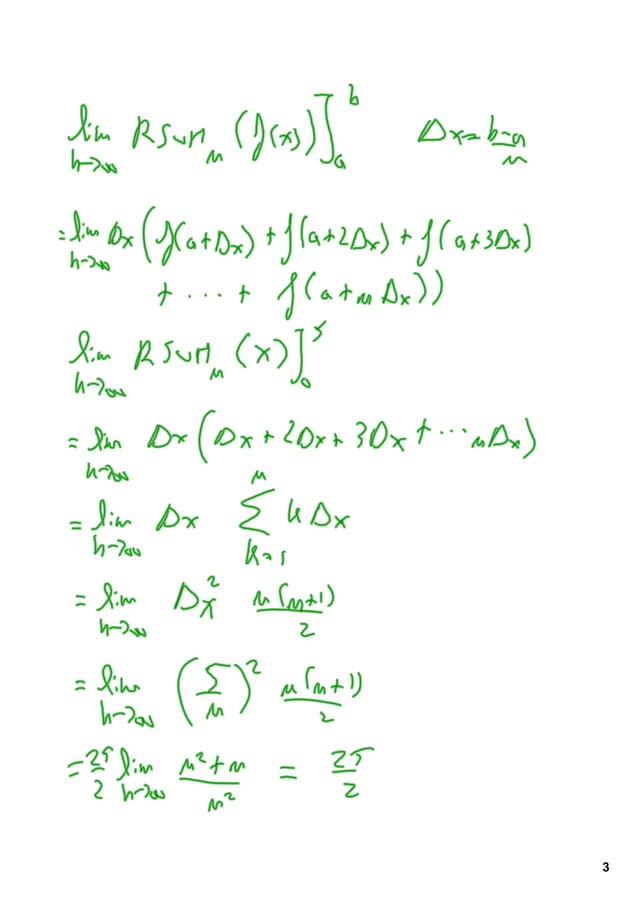 lim n→∞ RSUM_n (f(x))]_a^b   Δx = (b-a)/n
= lim n→∞ Δx (f(a+Δx) + f(a+2Δx) + f(a+3Δx)
+ ... + f(a+nΔx))
lim n→∞ RSUM_n (x)]_0^5
= lim n→∞ Δx (Δx + 2Δx + 3Δx + ... nΔx)
= lim n→∞ Δx ∑_{k=1}^n kΔx
= lim n→∞ Δx^2 n(n+1)/2
= lim n→∞ (5/n)^2 n(n+1)/2
= 25/2 lim n→∞ (n^2+n)/n^2 = 25/2
3